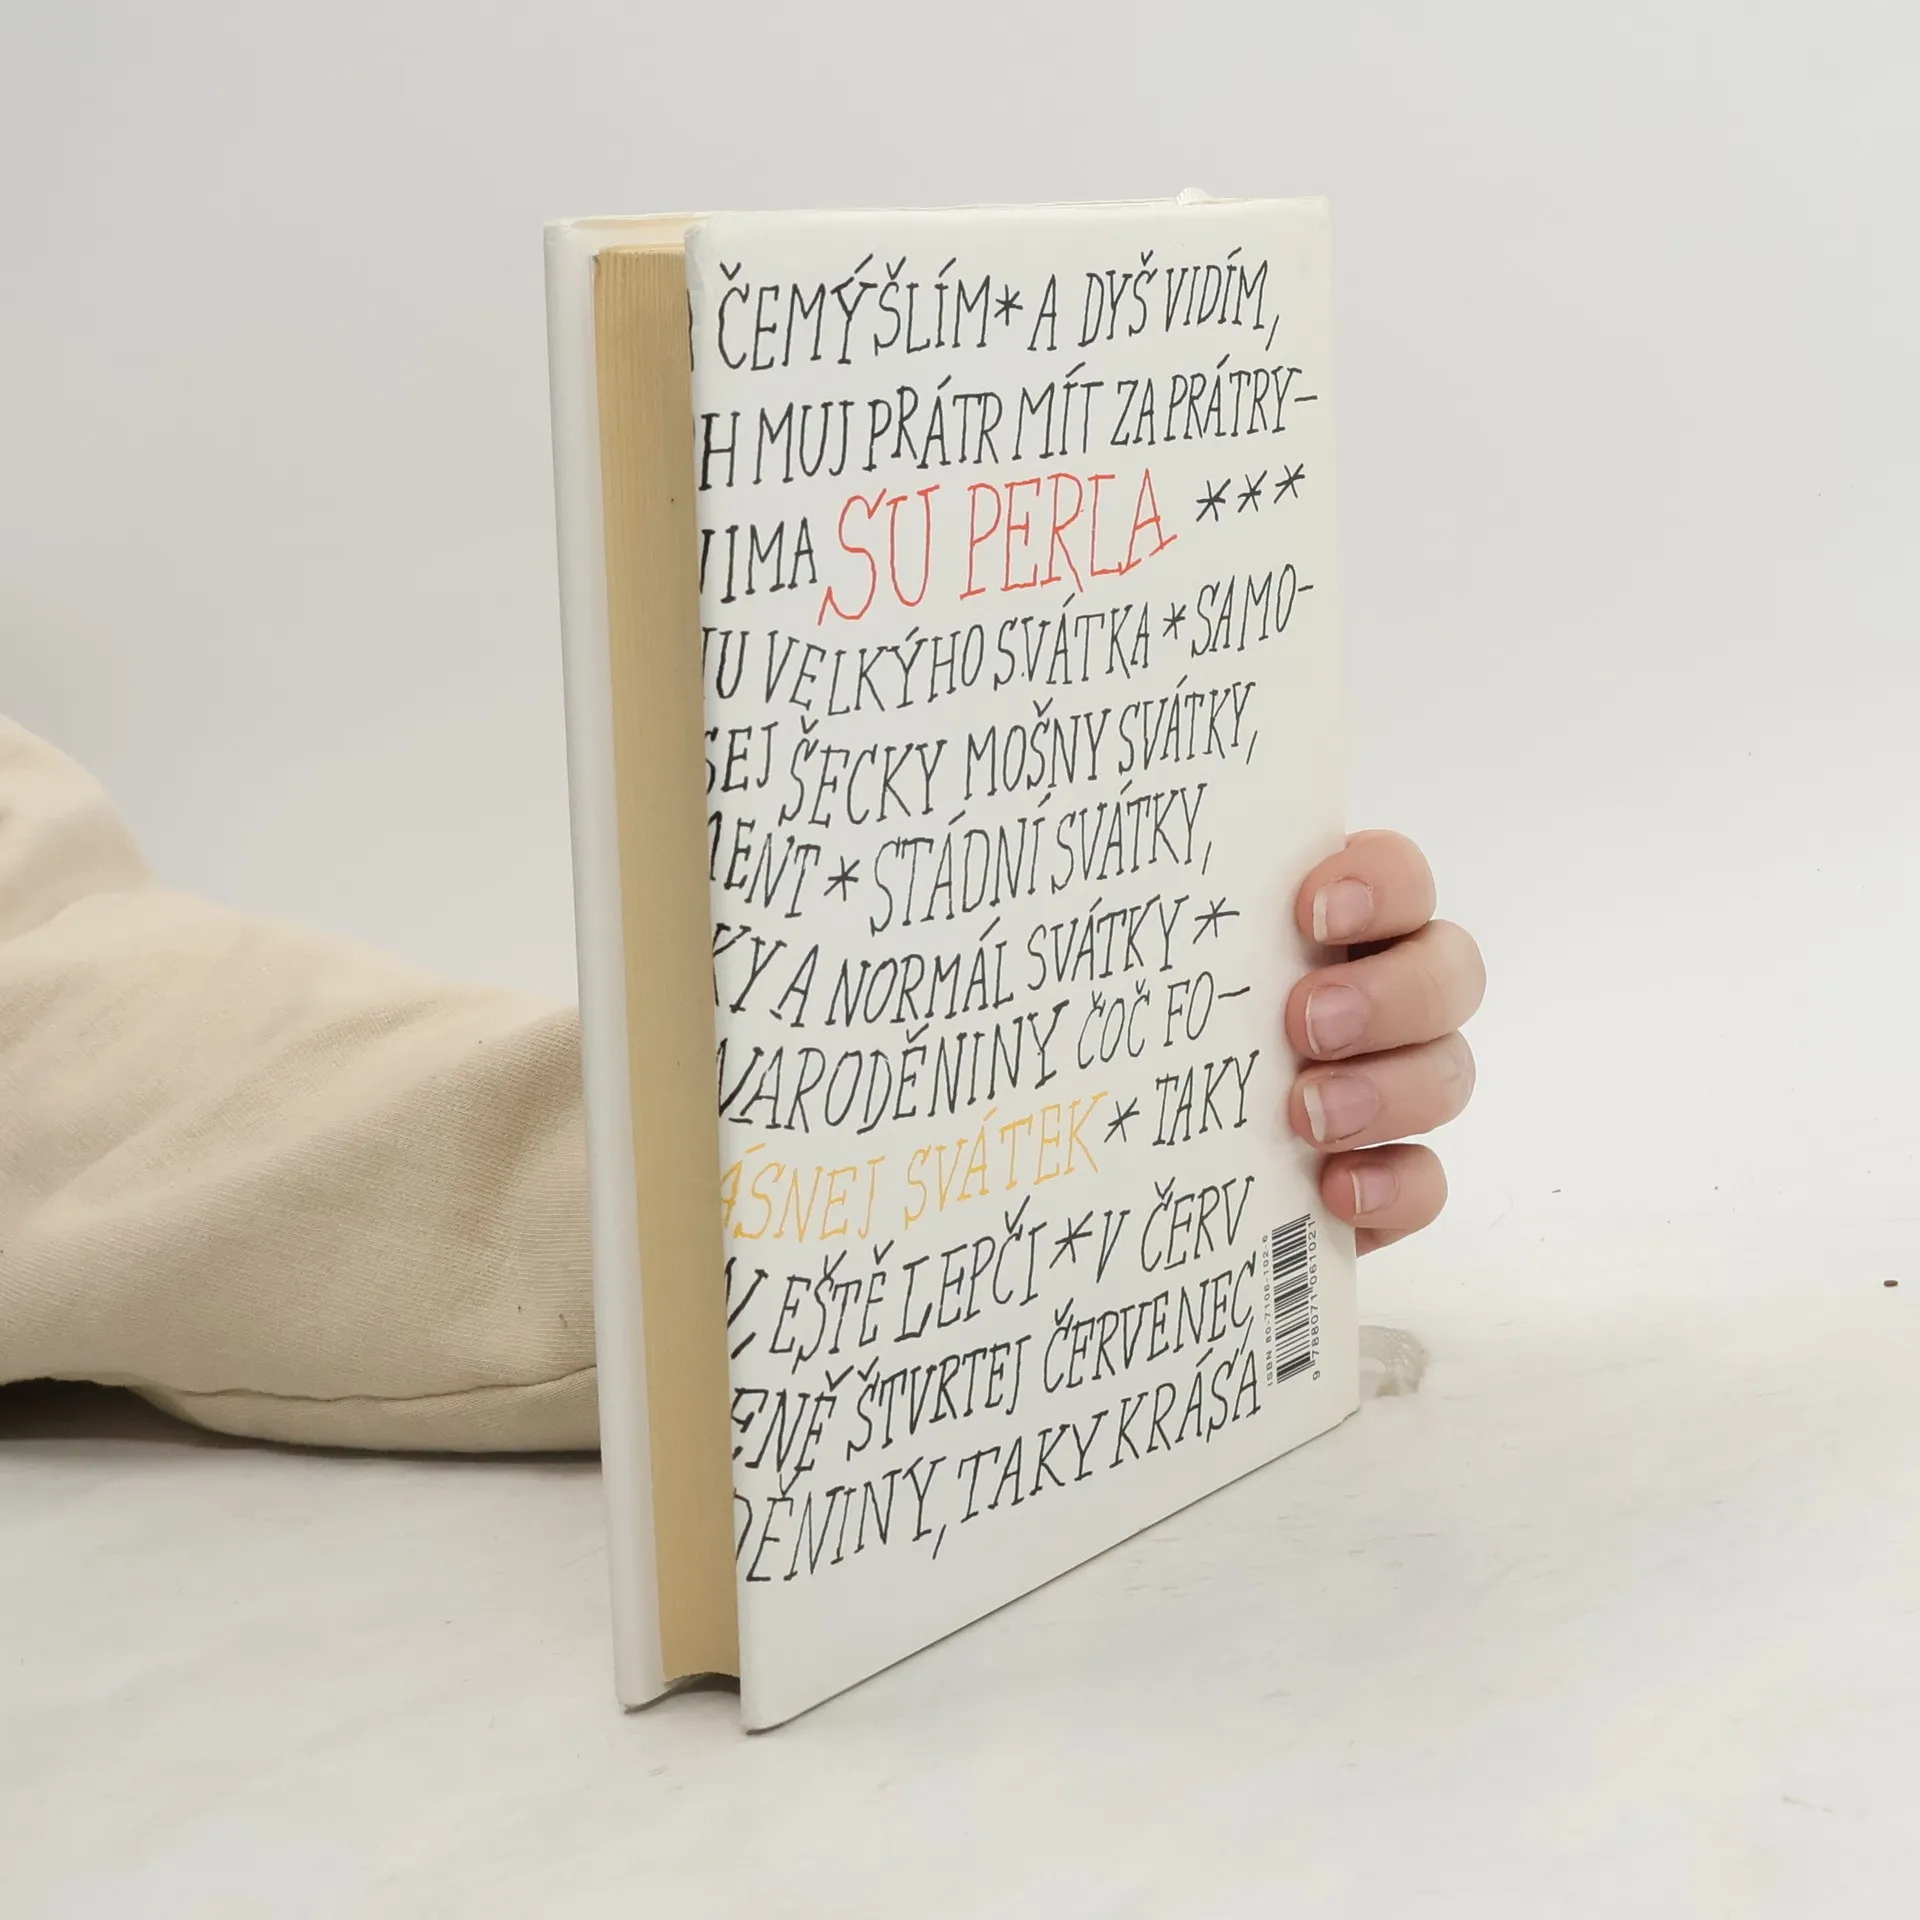 ČEMÝŠLÍM* A DYŠ VIDÍM,
H MUJ PRÁTR MÍT ZA PRÁTRY–
IMA SU PERLA ***
U VELKÝHO SVÁTKA * SAMO-
SEJ ŠECKY MOŠNY SVÁTKY,
ENT * STÁDNÍ SVÁTKY,
KY A NORMÁL SVÁTKY *
NARODĚNINY ČOČ FO–
ÁSNEJ SVÁTEK * TAKY
EŠTĚ LEPČI * V ČERV
ENĚ ŠTVRTEJ ČERVENEC,
DĚNINY, TAKY KRÁSA
ISBN 80-7106-102-6
9 788071 061021